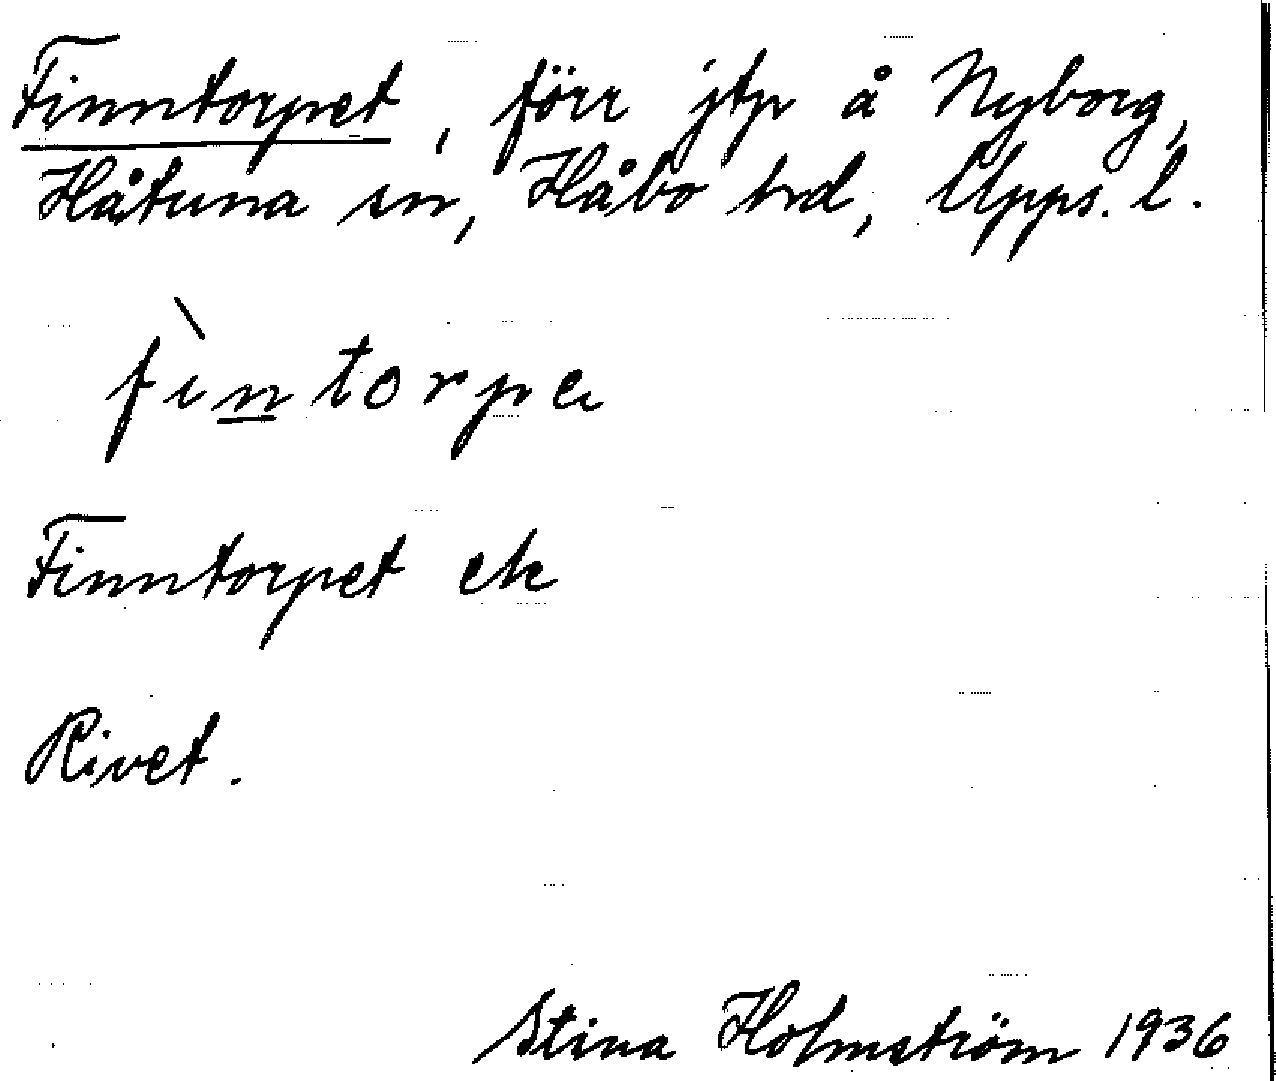 Finntorpet, förr jtp å Nyborg,
Håtuna sn, Håbo hrd, Upps. l.
fìntorpe
Finntorpet ek
Rivet.
Stina Holmström 1936